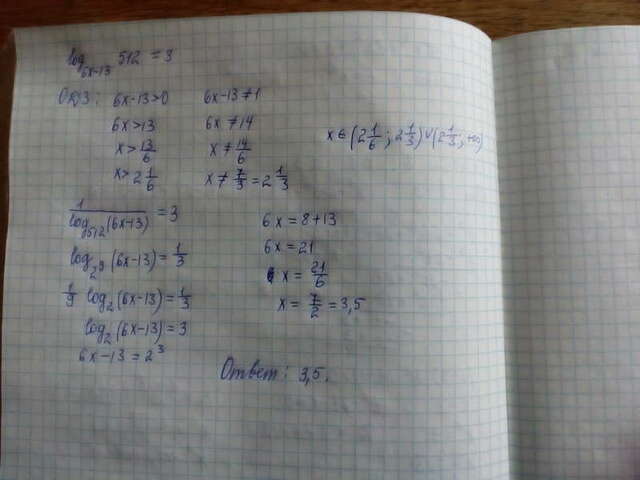 log_{6x-13} 512 = 3
ОДЗ: 6x-13>0    6x-13≠1
6x>13    6x≠14
x>13/6    x≠14/6
x>2 1/6    x≠7/3=2 1/3
x∈(2 1/6; 2 1/3)∪(2 1/3; +∞)
1/log_{512}(6x-13) = 3
log_{2^9}(6x-13) = 1/3
1/9 log_2(6x-13) = 1/3
log_2(6x-13) = 3
6x-13 = 2^3
6x = 8+13
6x = 21
x = 21/6
x = 7/2 = 3,5
Ответ: 3,5.